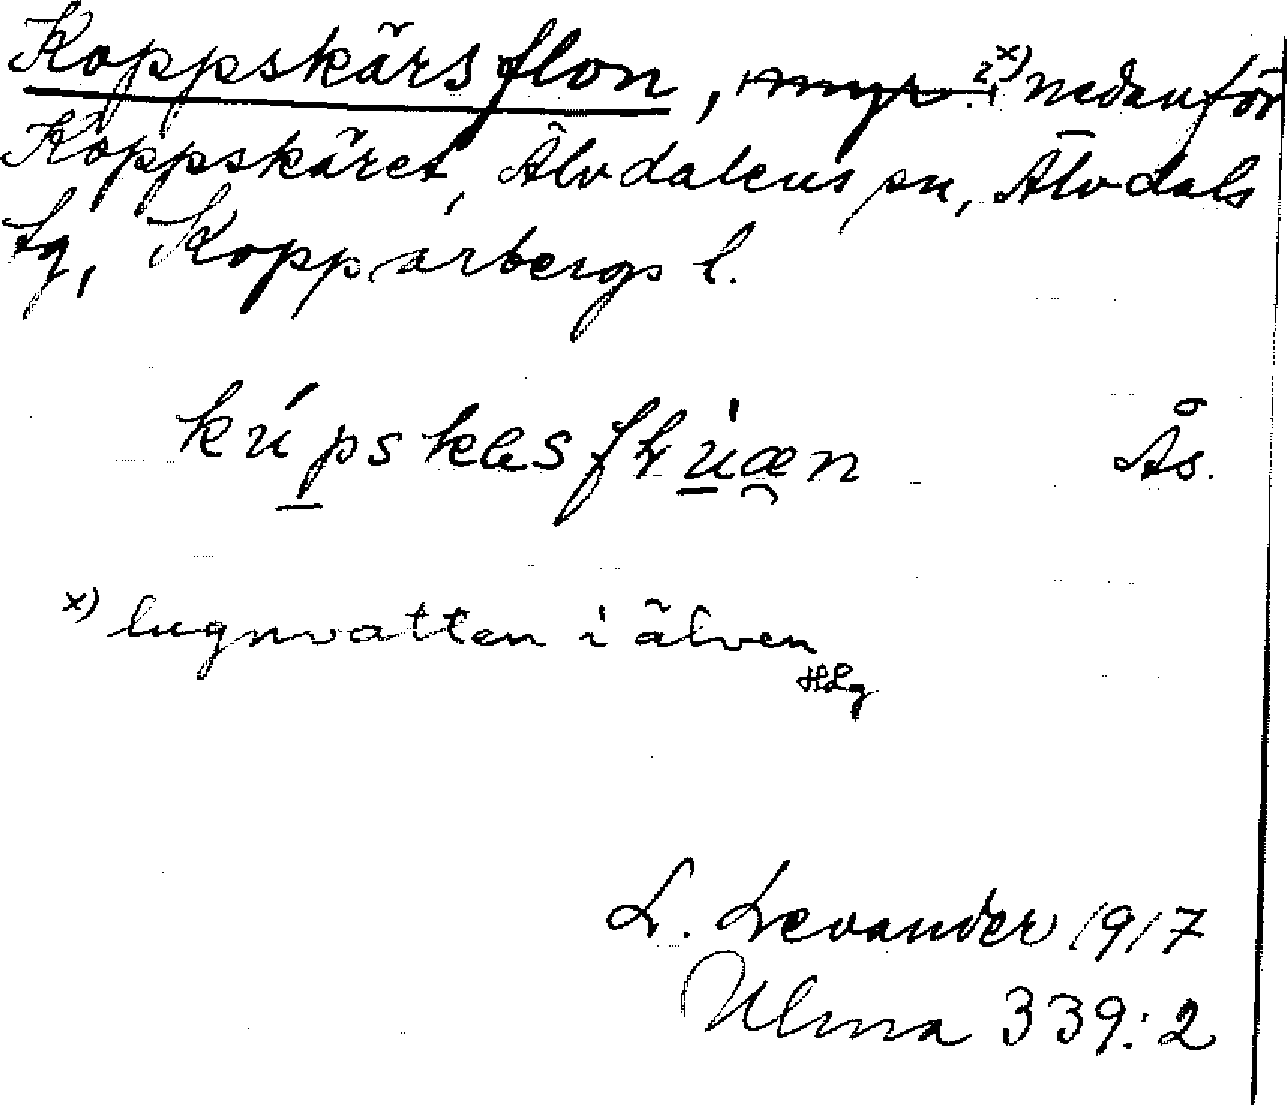 Koppskärsflon, myr ?, x) nedanför
Koppskäret, Älvdalens sn, Älvdals
tg, Kopparbergs l.
Ås.
x) lugnvatten i älven
HLg
L. Levander 1917
Ulma 339:2